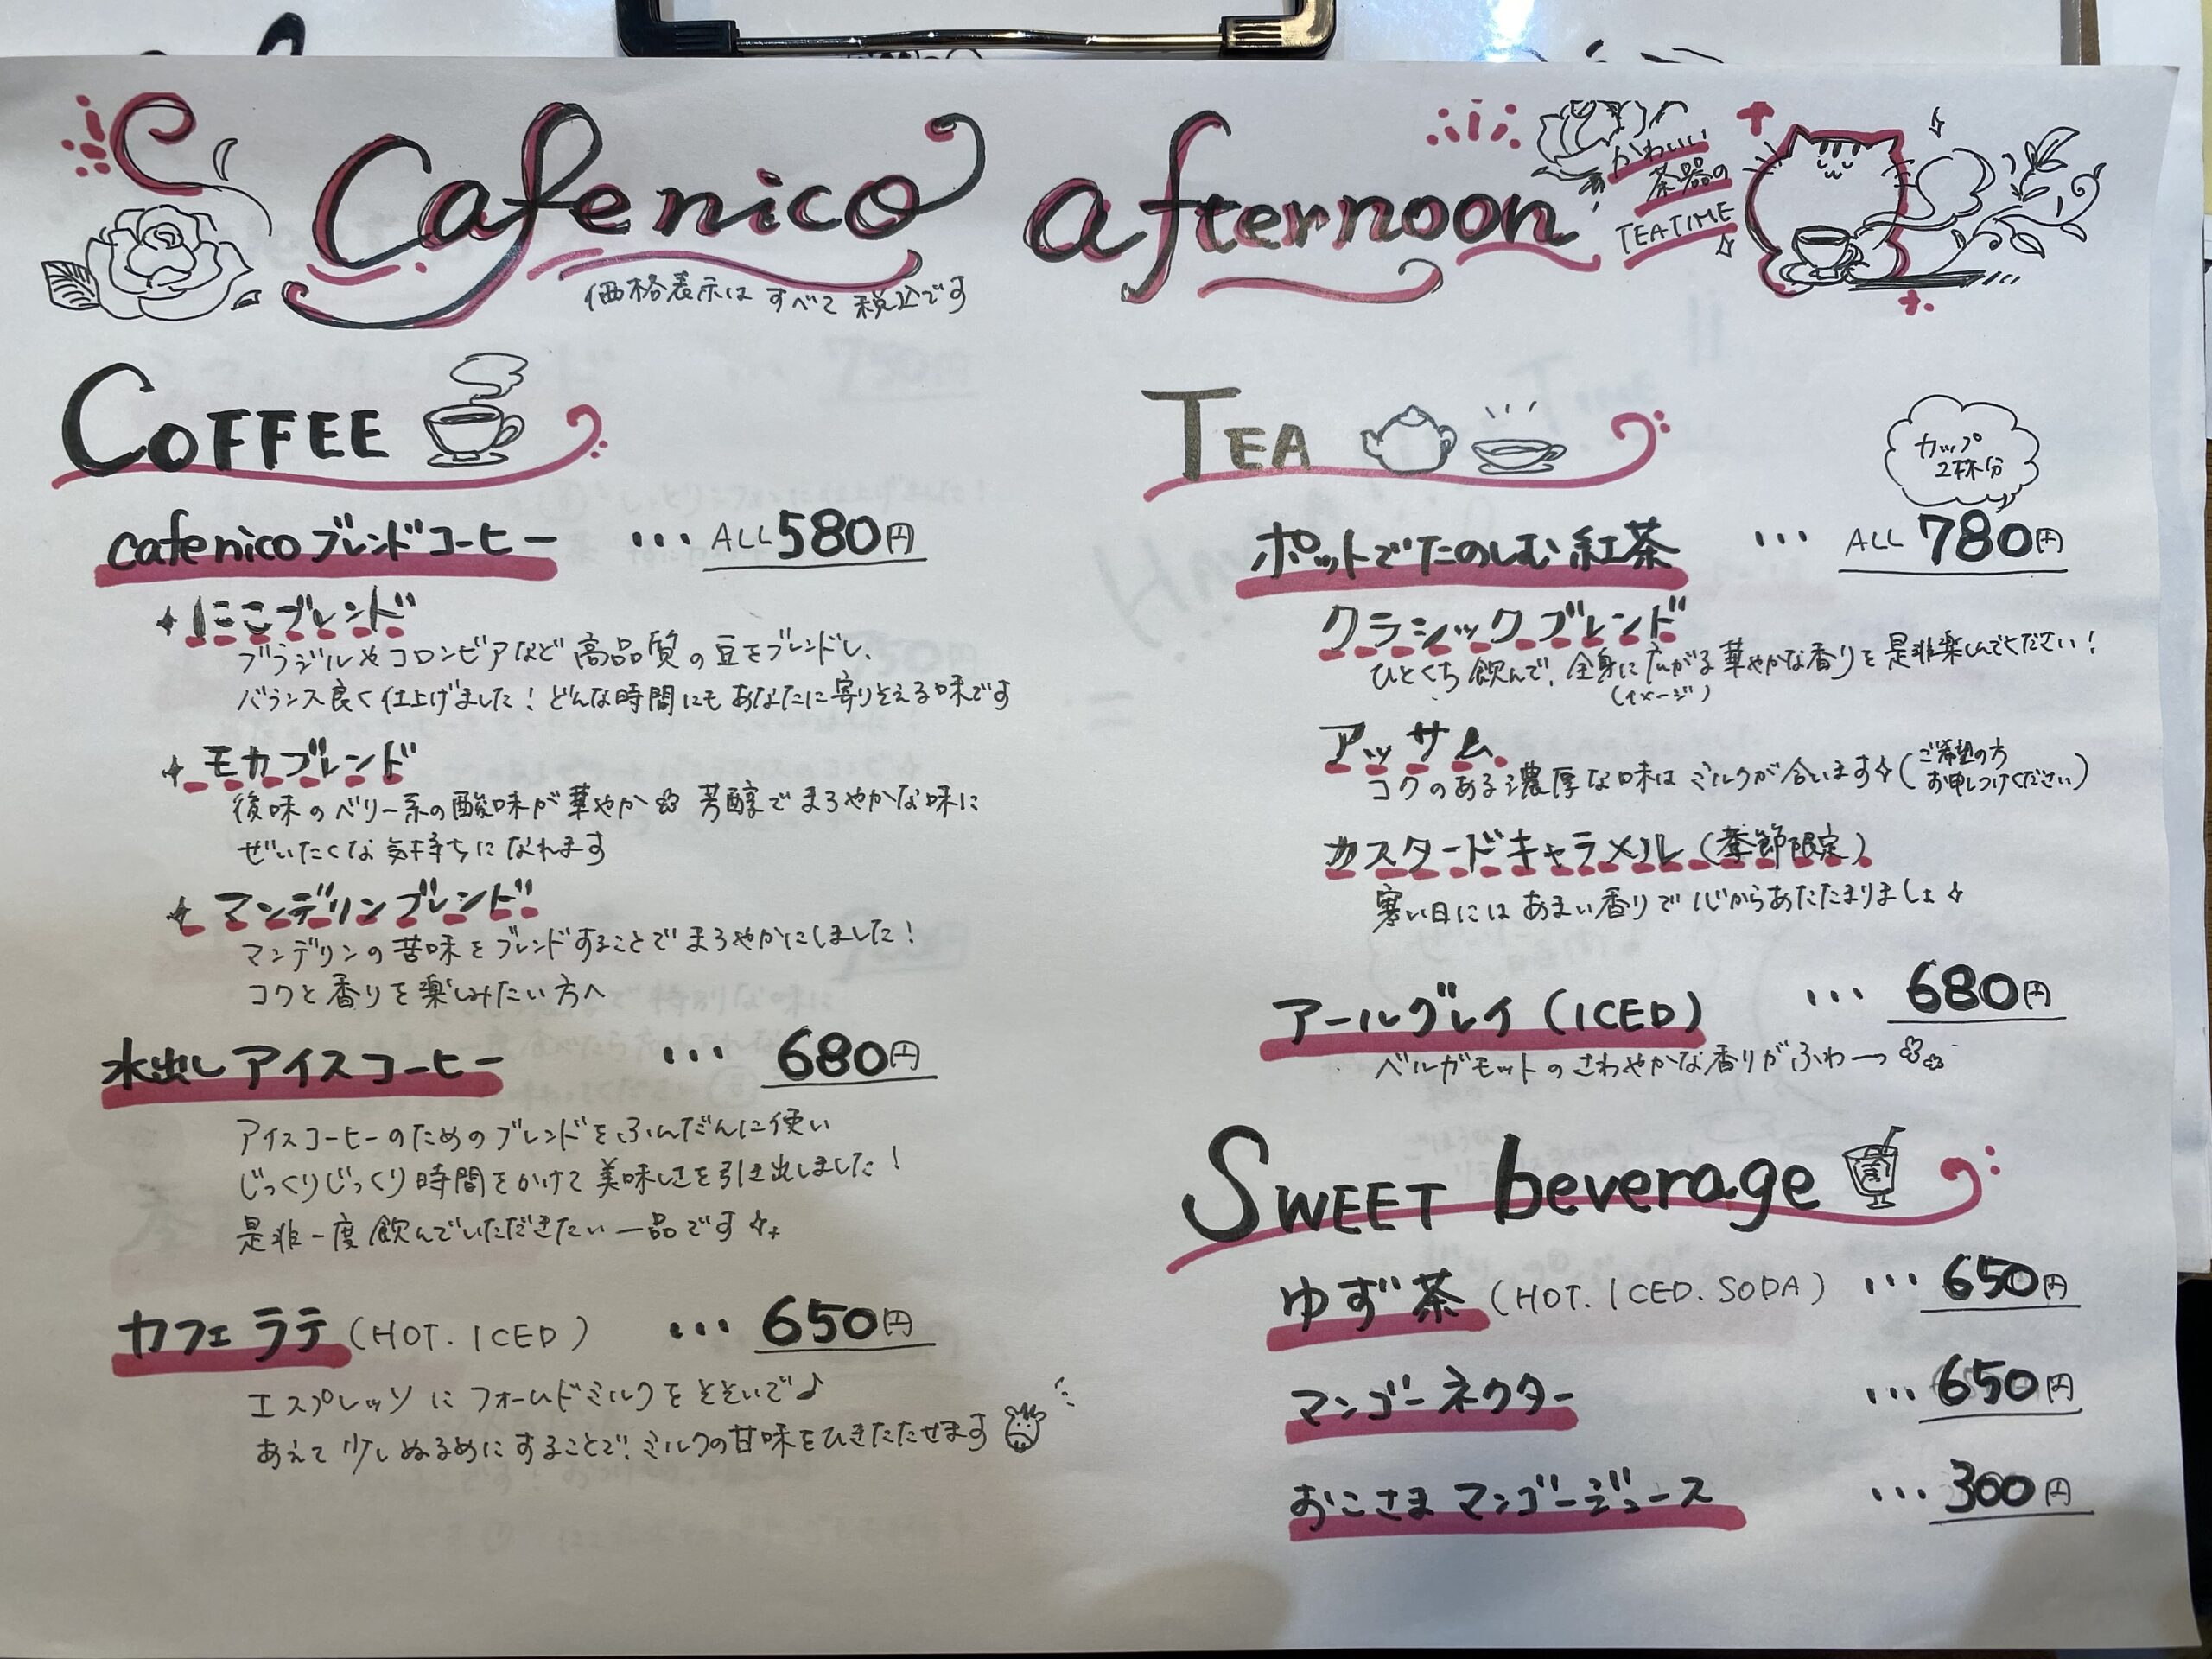 Cafe nico afternoon
かわいい
茶器の
TEA TIME
価格表示は すべて 税込です
COFFEE
cafe nico ブレンドコーヒー … ALL 580円
にこブレンド
ブラジルやコロンビアなど 高品質の豆をブレンドし、
バランス良く仕上げました！どんな時間にもあなたに寄りそえる味です
モカブレンド
後味のベリー系の酸味が華やか 芳醇でまろやかな味に
ぜいたくな気持ちになれます
マンデリンブレンド
マンデリンの苦味をブレンドすることでまろやかにしました！
コクと香りを楽しみたい方へ
水出しアイスコーヒー … 680円
アイスコーヒーのためのブレンドをふんだんに使い
じっくりじっくり時間をかけて美味しさを引き出しました！
是非一度飲んでいただきたい一品です
カフェラテ (HOT. ICED) … 650円
エスプレッソにフォームドミルクをそそいで♪
あえて少しぬるめにすることで、ミルクの甘味をひきたたせます
TEA
カップ
2杯分
ポットでたのしむ紅茶 … ALL 780円
クラシックブレンド
ひとくち飲んで、全身に広がる華やかな香りを是非楽しんでください！
(イメージ)
アッサム
コクのある濃厚な味はミルクが合います (ご希望の方
お申しつけください)
カスタードキャラメル (季節限定)
寒い日にはあまい香りで心からあたたまりましょ
アールグレイ (ICED) … 680円
ベルガモットのさわやかな香りがふわーっ
SWEET beverage
ゆず茶 (HOT. ICED. SODA) … 650円
マンゴーネクター … 650円
おこさまマンゴージュース … 300円